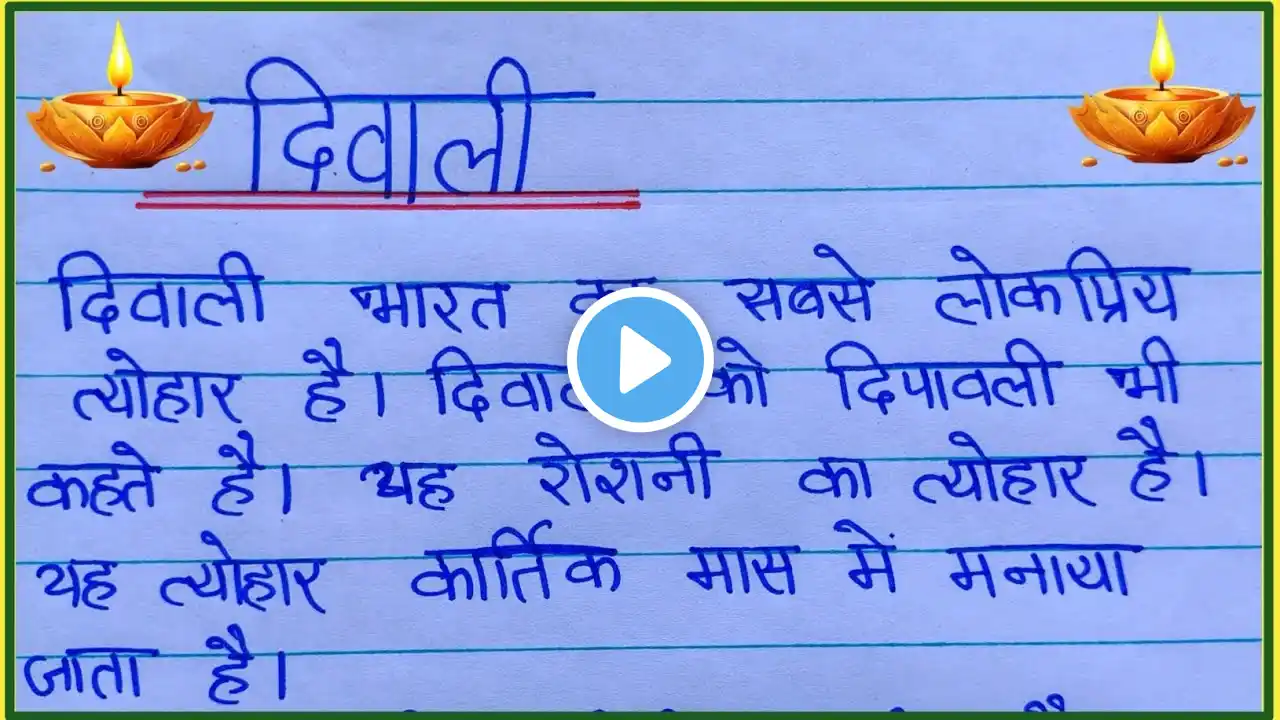 दिवाली
दिवाली भारत का सबसे लोकप्रिय
त्योहार है। को दिपावली भी
कहते है। यह रोशनी का त्योहार है।
यह त्योहार कार्तिक मास में मनाया
जाता है।